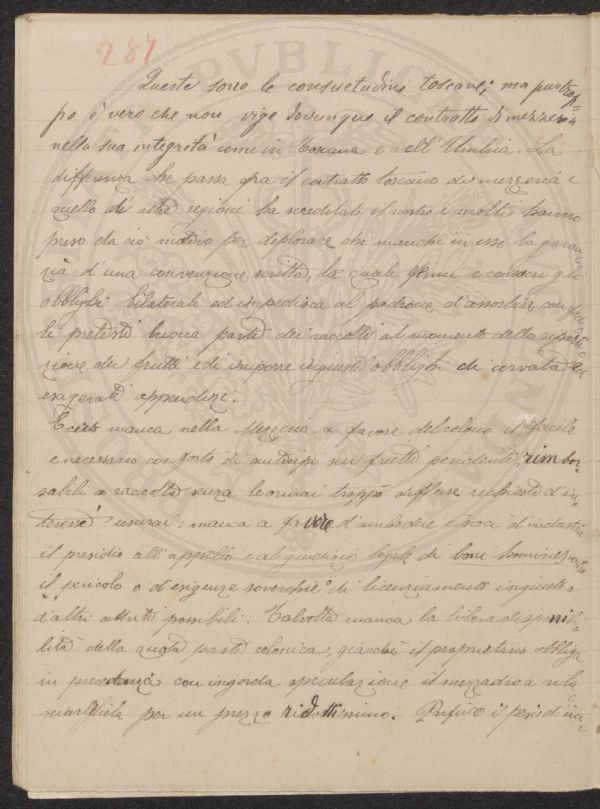 287
Queste sono le consuetudini toscane; ma purtrop=
po è vero che non vige dovunque il contratto di mezzeria
nella sua integrità come in Toscana e nell'Umbria. La
differenza che passa fra il contratto toscano di mezzeria e
quello di altre regioni ha screditato il nostro e molti hanno
preso da ciò motivo per deplorare che manchi in esso la garan=
zia d'una convenzione scritta, la quale fermi e consacri gli
obblighi bilaterali ed impedisca al padrone d'assorbire, con
li pretesti buona parte dei raccolti al momento della ripar=
zione dei frutti e di imporre ingiusti obblighi di corvate ed
esagerati appendizi.
E certo manca nella Mezzeria a favore del colono il facile
e necessario conforto di anticipi sui frutti pendenti, rimbor=
sabili a raccolta senza le ormai troppo diffuse richieste d'in=
teresse usurai: manca a favore d'ambedue i soci d'industria
il presidio all'appello e al giudizio legale di boni homines, contro
il pericolo o d'esigenze soverchie o di licenziamenti ingiusti o
d'altri attriti possibili. Talvolta manca la libera disponibi=
lità della quota parte colonica, giacchè il proprietario obbliga
in precedenza con ingorda speculazione il mezzadro a rila=
sciargliela per un prezzo ridottissimo. Perfino il peso d'un